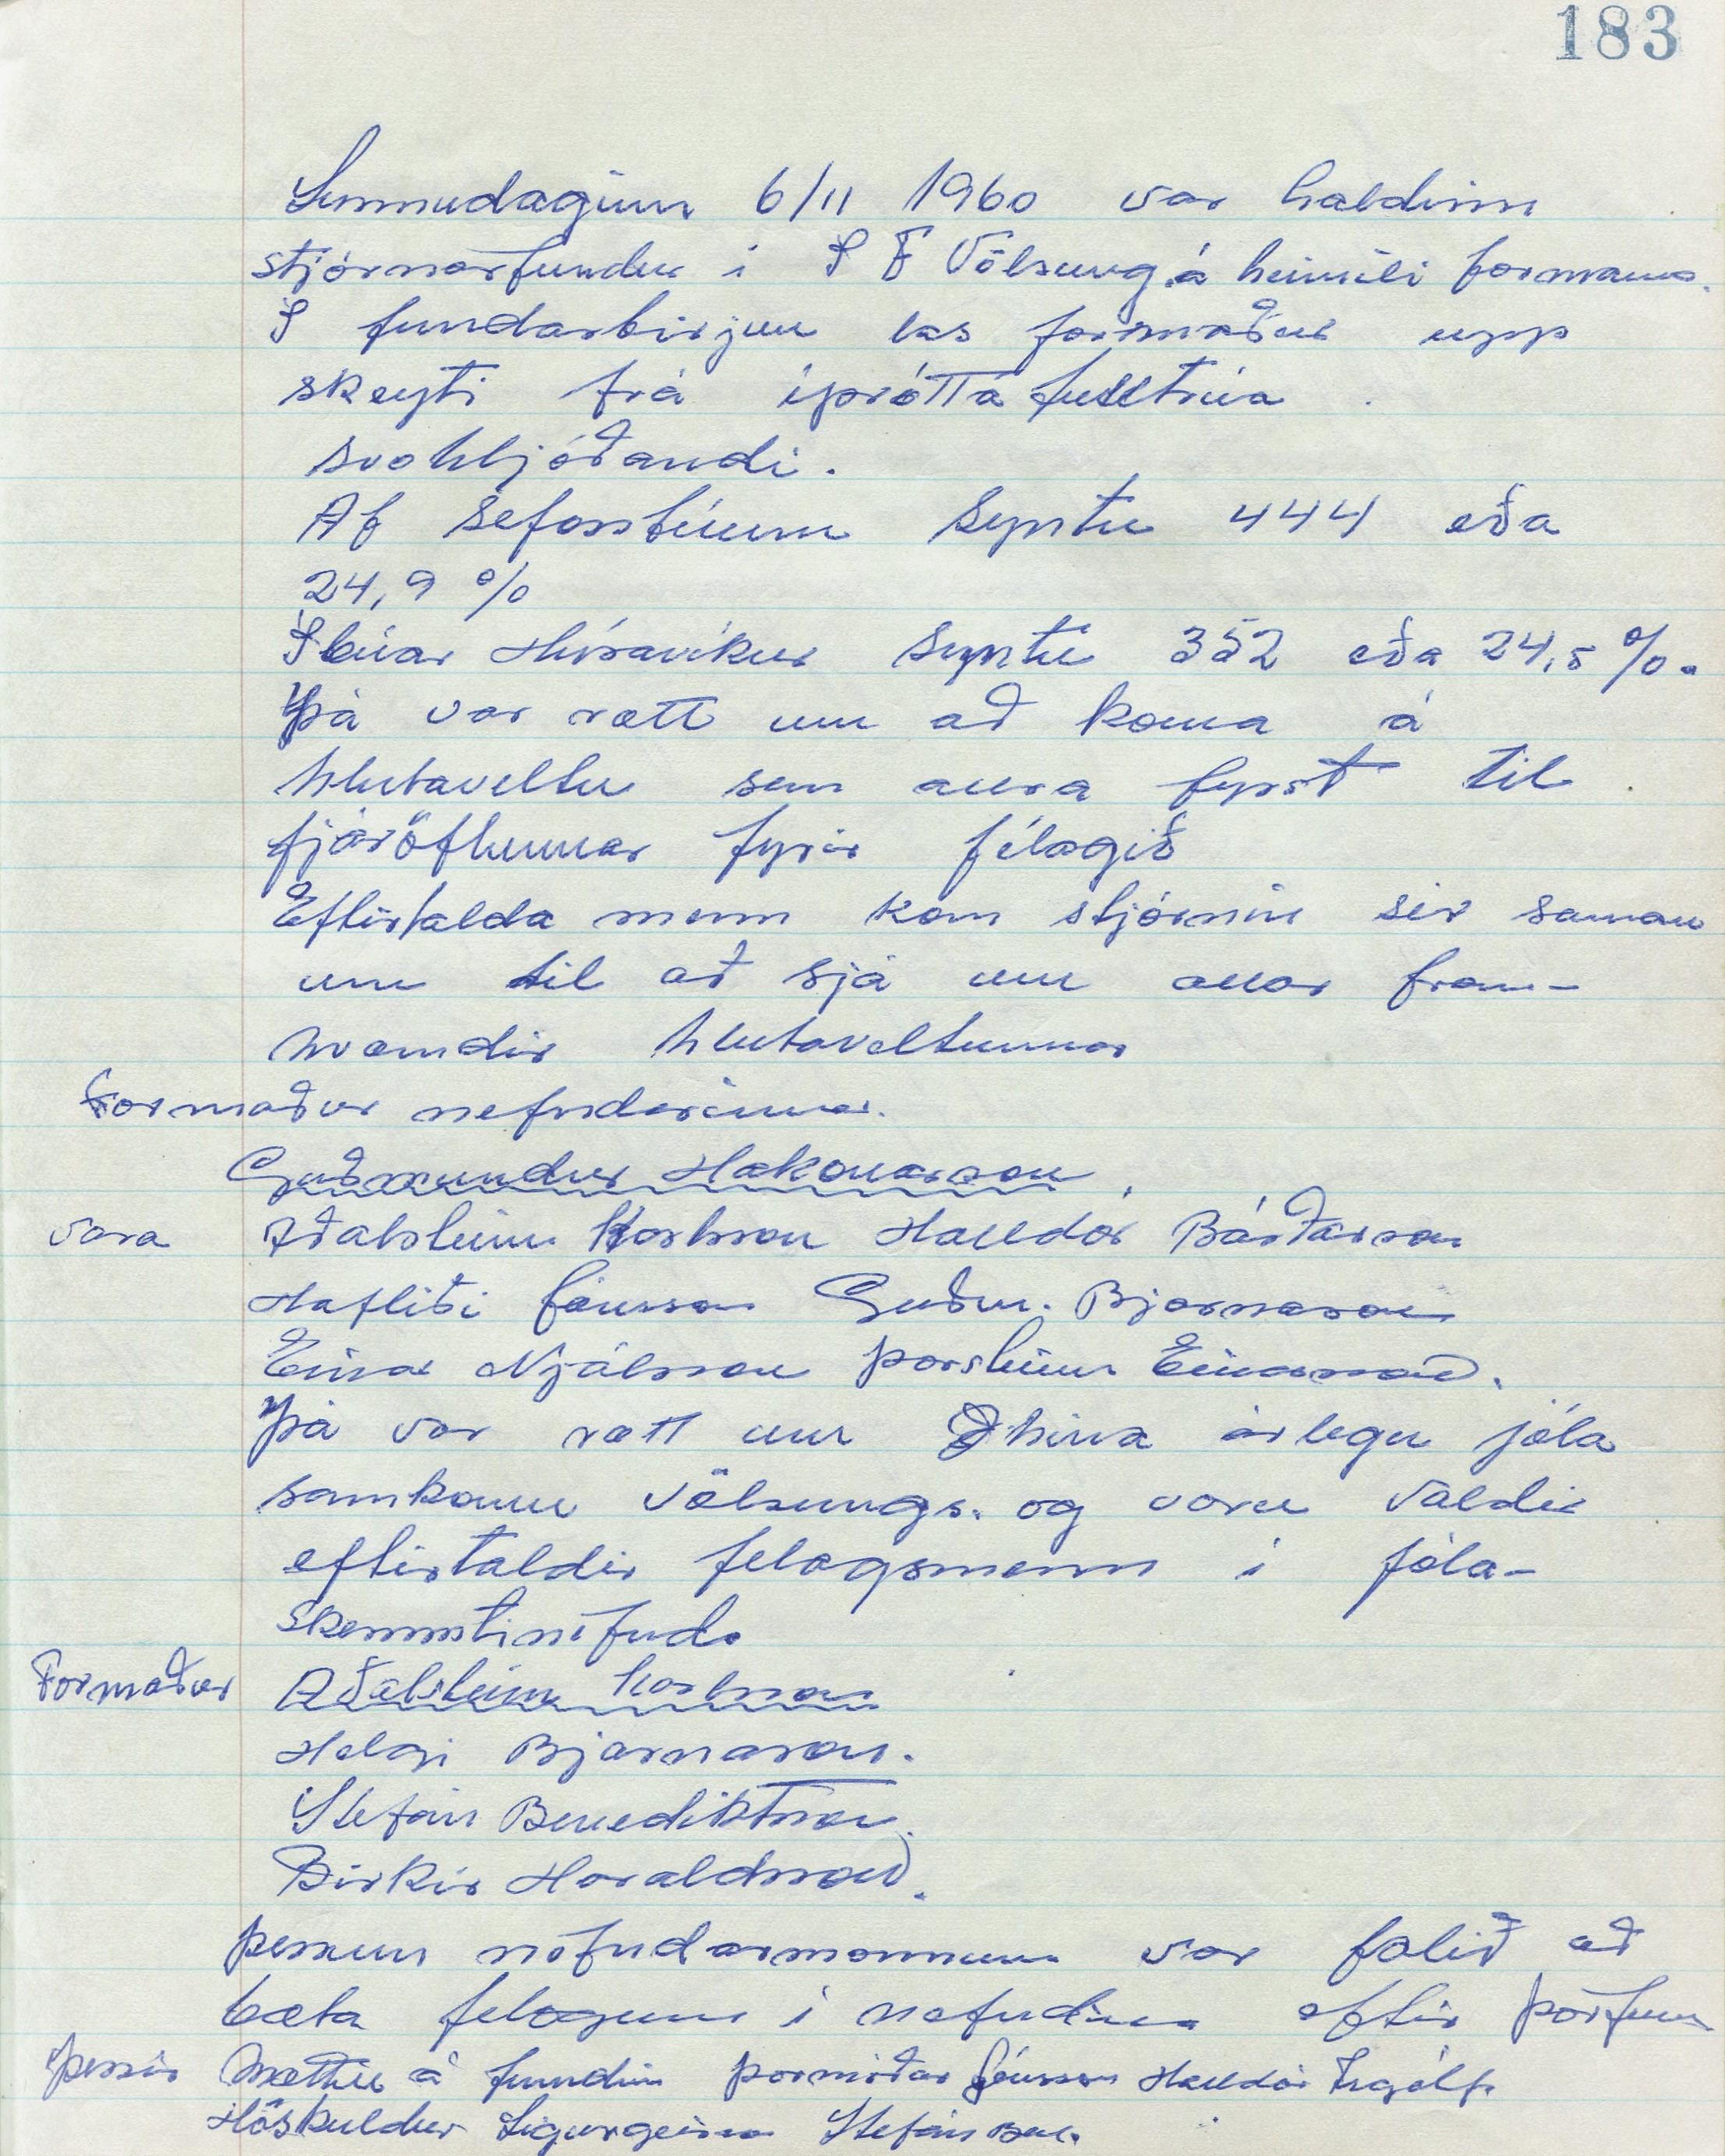 183
Sunnudaginn 6/11 1960 var haldinn
stjórnarfundur í Í F Völsung á heimili formanns.
Í fundarbirjun las formaður upp
skeyti frá íþrótta fulltrúa
svohljóðandi.
Af Selfossbúum Syntu 444 eða
24,9 %
Íbúar Húsavíkur Syntu 352 eða 24,5 %.
Þá var rætt um að koma á
hlutaveltu sem allra fyrst til
fjáröflunnar fyrir félagið
Eftirtalda menn kom stjórnin sér saman
um til að sjá um allar fram-
kvæmdir hlutaveltunnar
Formaður nefndarinnar.
Guðmundur Hákonarson,
vara Aðalsteinn Karlsson Halldór Bárðarson
Hafliði Jónsson Guðm. Bjarnason
Einar Njálsson Þorsteinn Einarsson.
Þá var rætt um hina árlegu jóla
samkomu Völsungs. og voru valdir
eftirtaldir felagsmenn í jóla-
skemmtinefnd.
Formaður Aðalsteinn Karlsson
Helgi Bjarnason.
Stefán Benediktsson.
Birkir Haraldsson.
Þessum nefndarmonnum var falið að
bæta felogum í nefndina eftir þörfum
Þessir Mættu á fundin Þormóður Jónsson Halldór Ingólfs
Höskuldur Sigurgeirss Stefán Ben.